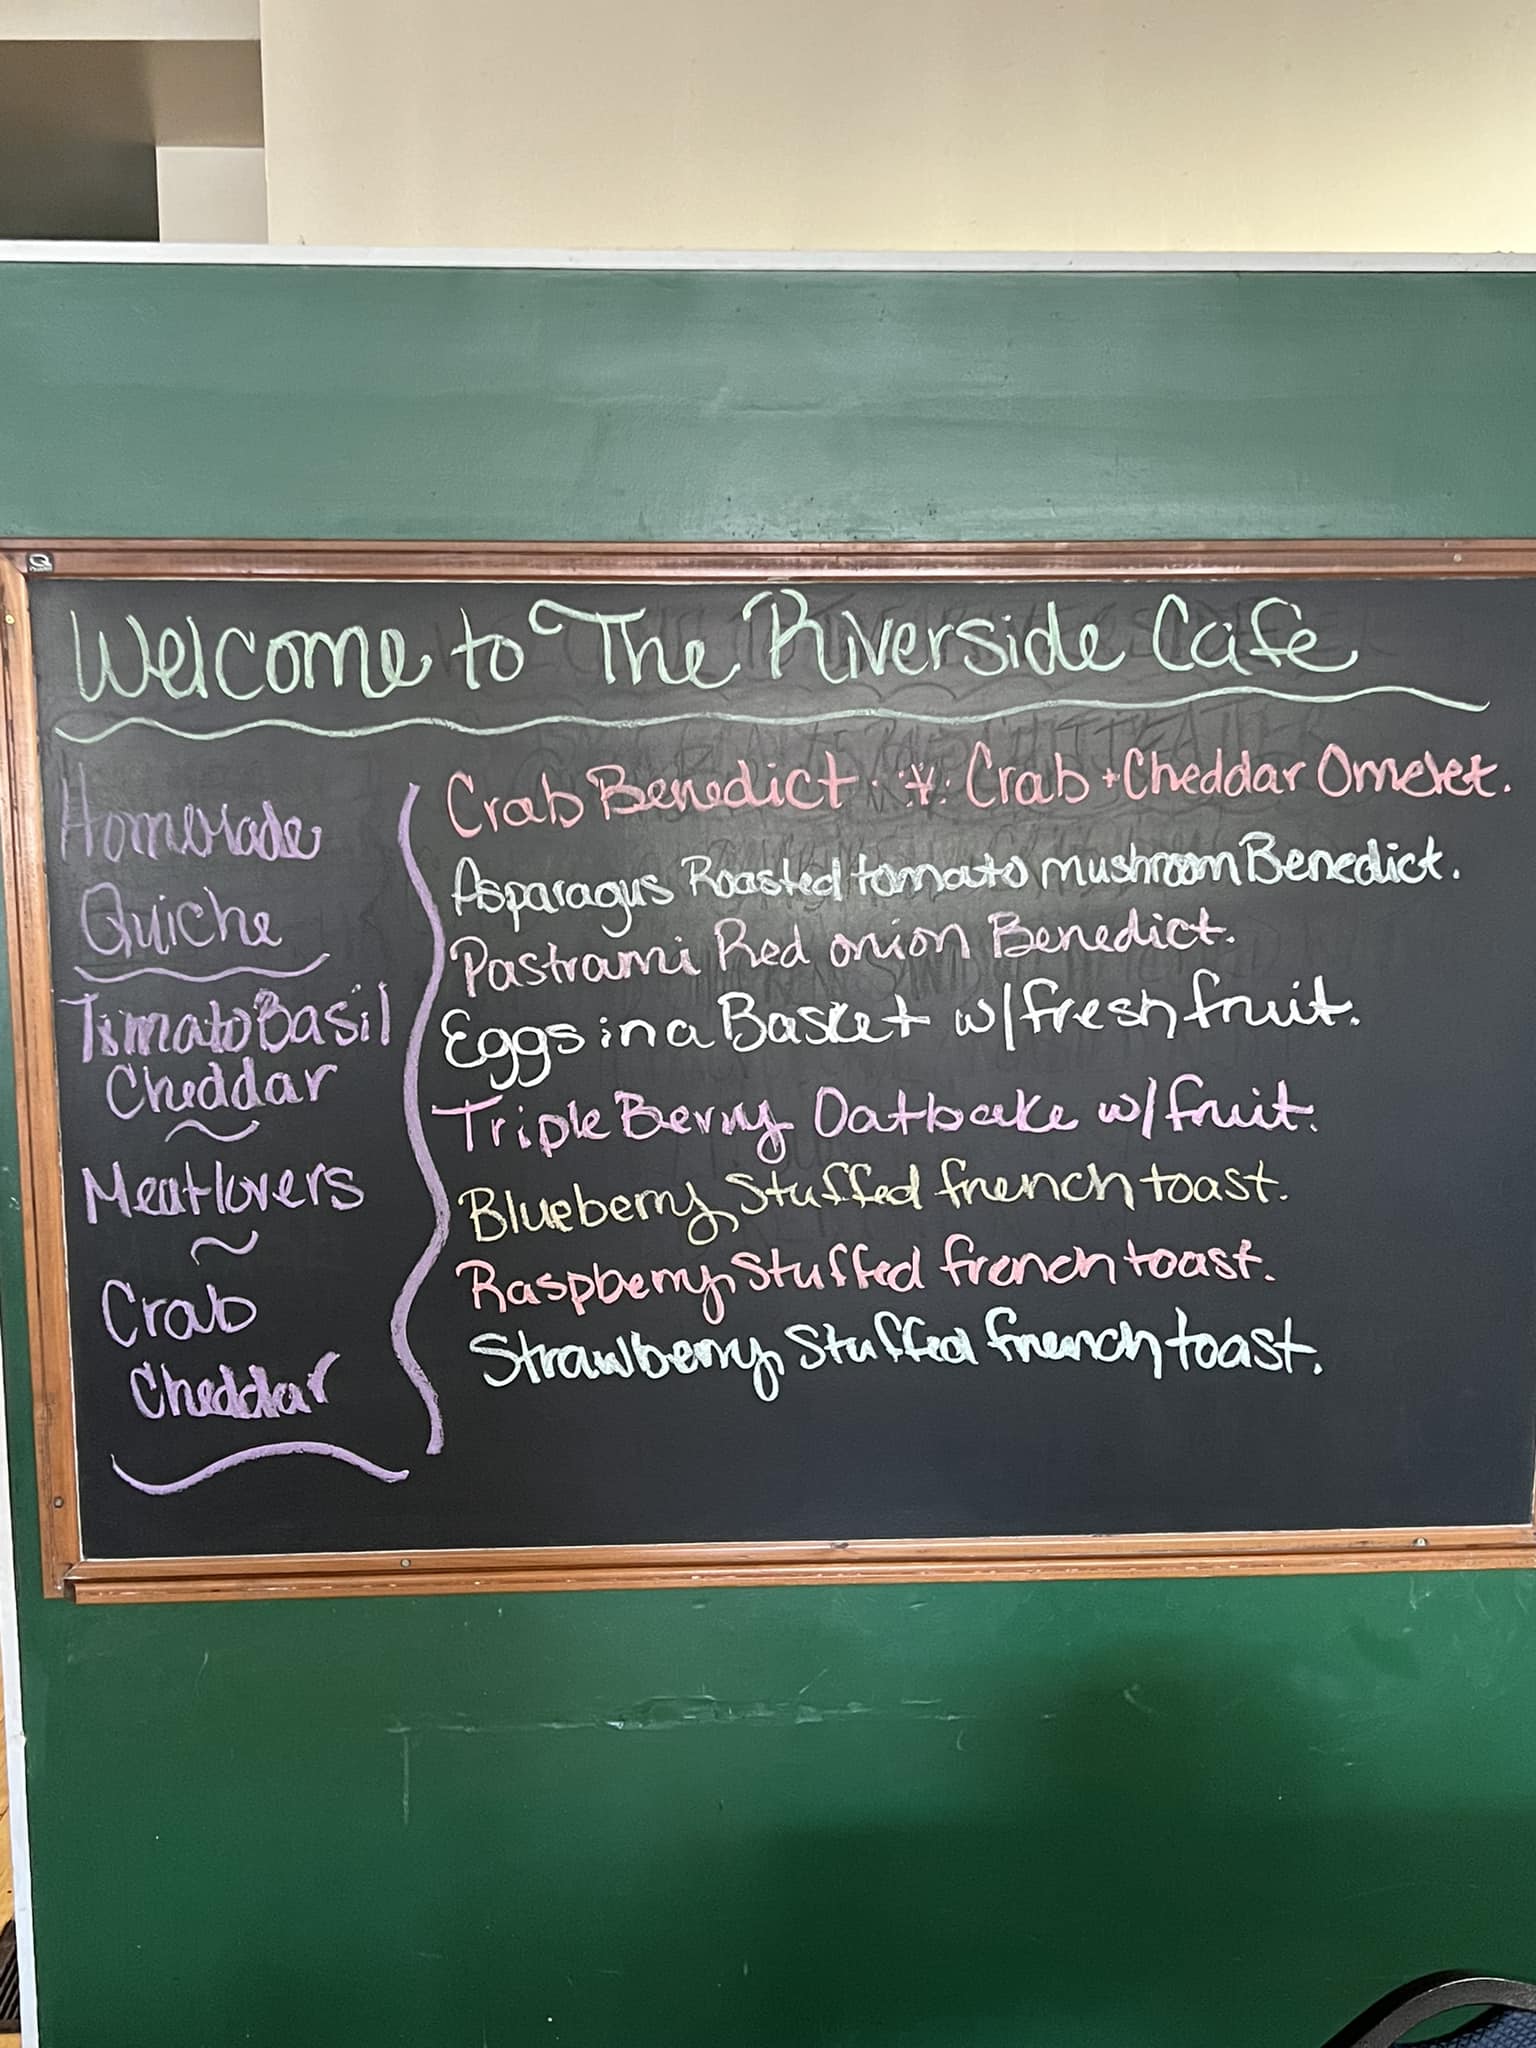 Welcome to The Riverside Cafe
Homemade
Quiche
Tomato Basil
Cheddar
~
Meatlovers
~
Crab
Cheddar
Crab Benedict. * Crab + Cheddar Omelet.
Asparagus Roasted tomato mushroom Benedict.
Pastrami Red onion Benedict.
Eggs in a Basket w/fresh fruit.
Triple Berry Oatbake w/fruit.
Blueberry Stuffed french toast.
Raspberry Stuffed french toast.
Strawberry Stuffed french toast.